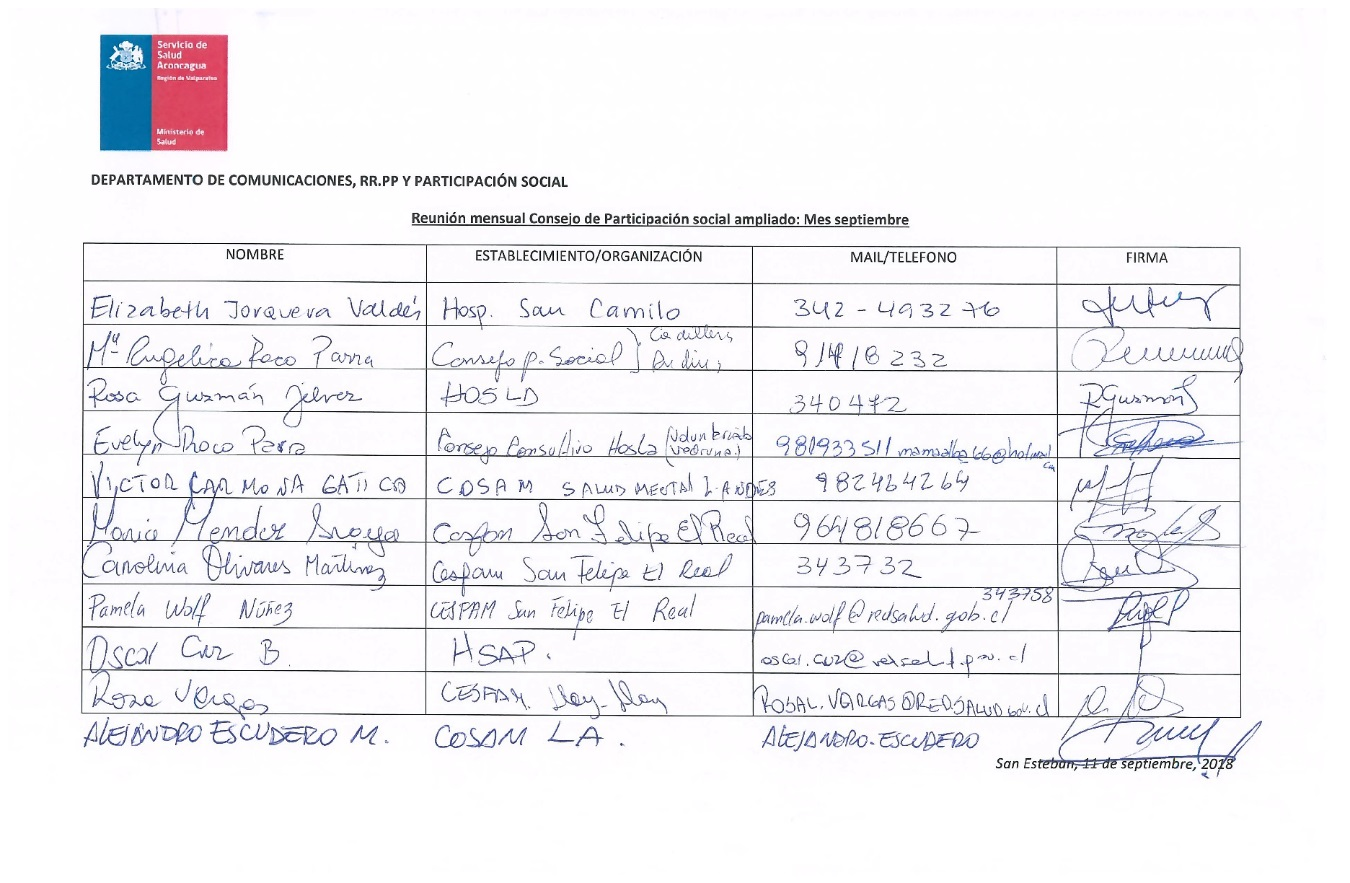 Servicio de
Salud
Aconcagua
Región de Valparaíso
Ministerio de
Salud
DEPARTAMENTO DE COMUNICACIONES, RR.PP Y PARTICIPACIÓN SOCIAL
Reunión mensual Consejo de Participación social ampliado: Mes septiembre
NOMBRE ESTABLECIMIENTO/ORGANIZACIÓN MAIL/TELEFONO FIRMA
Elizabeth Jorquera Valdés Hosp. San Camilo 342-493276
Mª Angelica Roco Parra Consejo p. Social
Rosa Guzmán Jelvez HOSLD 340472 RGuzmán
Evelyn Roco Parra Consejo Consultivo Hosla 981933511
VICTOR CARMONA GATICA COSAM SALUD MENTAL L-ANDES 982464264
Maria Mendez Cesfam San Felipe El Real 964818667
Carolina Olivares Martinez Cesfam San Felipe El Real 343732
Pamela Wolf Núñez CESFAM San Felipe El Real pamela.wolf@redsalud.gob.cl 343758
Oscar Cruz B. HSAP.
Rosa Vargas CESFAM. Llay-Llay ROSAL.VARGAS@REDSALUD.gov.cl
ALEJANDRO ESCUDERO M. COSAM LA. ALEJANDRO.ESCUDERO
San Esteban, 11 de septiembre, 2018